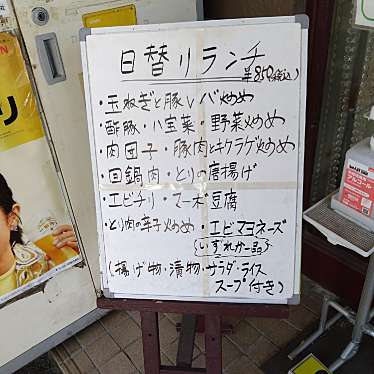 日替りランチ
¥850(税込)
・玉ねぎと豚レバ炒め
・酢豚・八宝菜・野菜炒め
・肉団子・豚肉とキクラゲ炒め
・回鍋肉・とりの唐揚げ
・エビチリ・マーボ豆腐
・とり肉の辛子炒め・エビマヨネーズ
{いずれか一品}
(揚げ物・漬物・サラダ・ライス
スープ付き)
アルコール